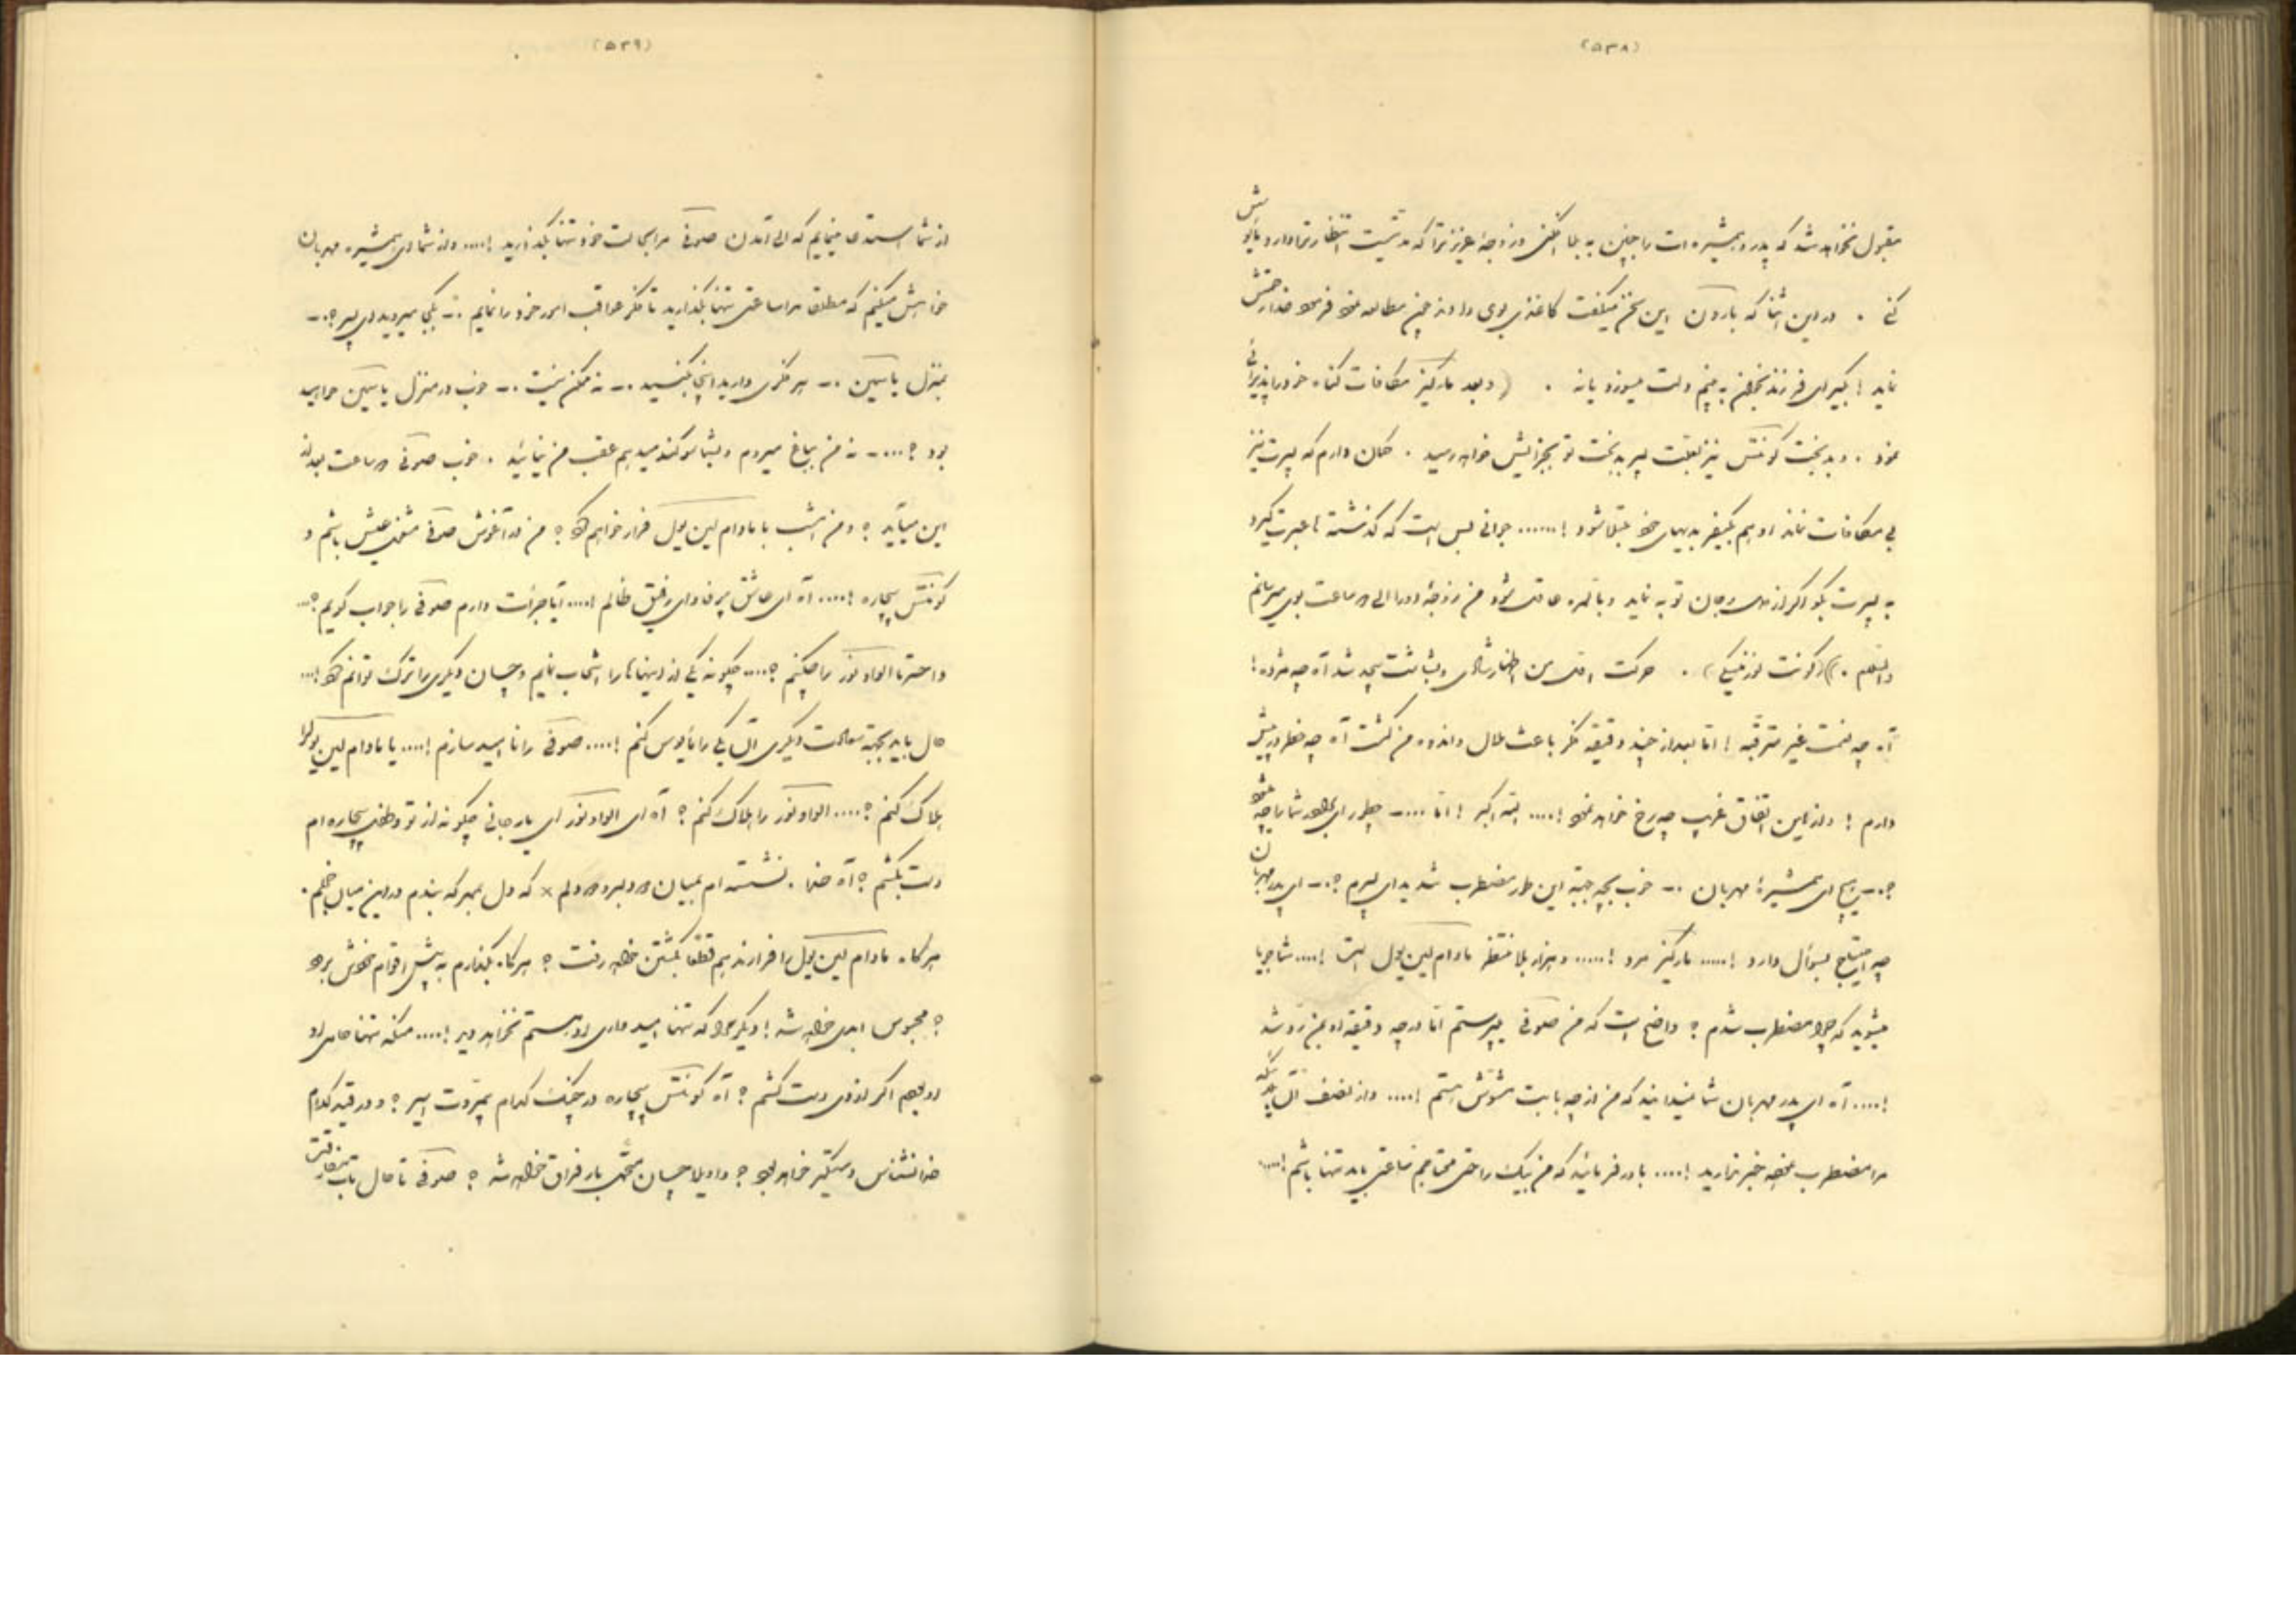 (۵۳۸)
مقبول نخواهد شد که پدر و همشیره ات را چنین به بلا افکنی و زوجهٔ عزیز ترا که مدتیست انتظار ترا دارد مأیوسش
کنی . در این اثنا که بارون این سخن میگفت کاغذی بوی دادند چون مطالعه نمود فرمود خدا رحمتش
نماید ! بگیر ای فرزند بخوان به بینم دلت میسوزد یا نه . ( و بعد مارکیز مکافات گناه خود را پذیرائی
نمود . و بدبخت کونتس نیز بعلت پسر بدبخت تو بجزایش خواهد رسید . گمان دارم که پسرت نیز
بی مکافات نماند او هم بکیفر بدیهای خود مبتلا شود !...... جوانی بس است که گذشته ها عبرت گیرد
به پسرت بگو اگر از دل و جان توبه نماید و بالمره عاقل شود من زوجهٔ او را الی ساعت بوی میرسانم
والسلام .)) (کونت لوزنسکی) . حرکت اولی من اظهار شادی و بشاشت بیحد شد آه چه مژده !
آه چه نعمت غیر مترقبه ! اما بعد از چند دقیقه فکر باعث ملال و اندوه من گشت آه چه خطر در پیش
دارم ! و از این اتفاق غریب چه رخ خواهد نمود !.... الله اکبر ! اما ....ـ چطور ای برادر شما را چه میشود
؟ـ هیچ ای همشیرهٔ مهربان .ـ خوب بچه جهة این طور مضطرب شدید ای پسرم ؟ـ ای پدر مهربان
چه احتیاج بسؤال دارد !..... مارکیز مرد !..... و هزار بلا منتظر مادام لین یول است !.... شما جویا
میشوید که چرا مضطرب شدم ؟ واضح است که من صوفی میپرستم اما در چه دقیقه او بمن رد شد
!.... آه ای پدر مهربان شما نمیدانید که من از چه بابت مشوش هستم !.... و از نصف آن بلائیکه
مرا مضطرب نموده خبر ندارید !.... باور فرمائید که من بیک راحتی محتاجم ساعتی باید تنها باشم !....
(۵۳۹)
از شما استدعا مینمایم که الی آمدن صوفی مرا بحالت خود تنها بگذارید !.... و از شما ای همشیره مهربان
خواهش میکنم که مطلقا مرا ساعتی تنها بگذارید تا فکر عواقب امور خود را نمایم .ـ بکجا میروید ای پسر ؟ـ
بمنزل یاسمین .ـ هر فکری دارید اینجا بکنید .ـ نه ممکن نیست .ـ خوب در منزل یاسمین خواهید
بود ؟....ـ نه من بباغ میروم و بشما سوگند میدهم عقب من نیائید . خوب صوفی ساعت بعد از
این میآید ؟ و من امشب با مادام لین یول فرار خواهم کرد ؟ من در آغوش صوفی مشغول عیش باشم و
کونتس بیچاره !.... آه ای عاشق بیوفا و ای رفیق ظالم !.... آیا جرأت دارم صوفی را جواب گویم ؟...
وا حسرتا الواد نور را چکنم ؟.... چگونه یکی از اینها را انتخاب نمایم و چسان دیگری را ترک توانم کرد !...
حال باید بجهة سعادت دیگری آن یکی را مأیوس کنم !.... صوفی را نا امید سازم !.... یا مادام لین یول را
هلاک کنم ؟.... الواد نور را هلاک کنم ؟ آه ای الواد نور ای یار جانی چگونه از تو و طفل بیچاره ام
دست بکشم ؟ آه خدا . نشسته ام بمیان دو دلبر و دو دلم × که دل بمهر که بندم در این میان خجلم .
هر گاه مادام لین یول را فرار ندهم قطعا بکشتن خواهد رفت ؟ هر گاه بگذارم به پیش اقوام خویش برود
؟ محبوس ابدی خواهد شد ! دیگر مرا که تنها امید وار او هستم نخواهد دید !.... منکه تنها حامی او
او بودم اگر از وی دست کشم ؟ آه کونتس بیچاره در چنگ کدام بیمروت اسیر ؟ و در قید کدام
خدا نشناس دستگیر خواهد بود ؟ واویلا چسان متحمل بار فراق خواهد شد ؟ صوفی تا حال تاب مفارقت